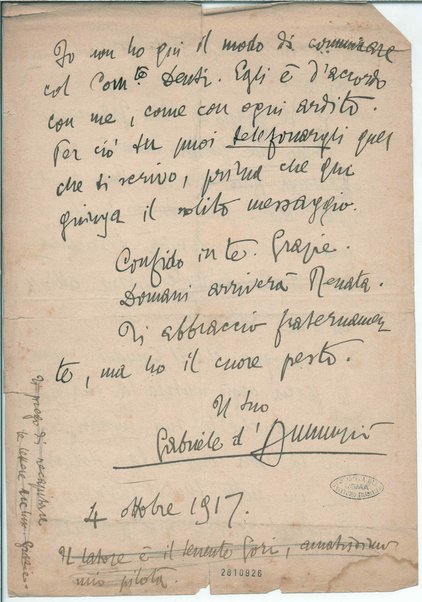 Io non ho qui il modo di comunicare
col Com.te Denti. Egli è d'accordo
con me, come con ogni ardito.
Per ciò tu puoi telefonargli quel
che ti scrivo, prima che qui
giunga il solito messaggio.
Confido in te. Grazie.
Domani arriverà Renata.
Ti abbraccio fraternamen
te, ma ho il cuore pesto.
Il tuo
Gabriele d'Annunzio
4 ottobre 1917.
Il latore è il tenente Gori, amatissimo
mio pilota.
Ti prego di recapitare
le lettere
2810926